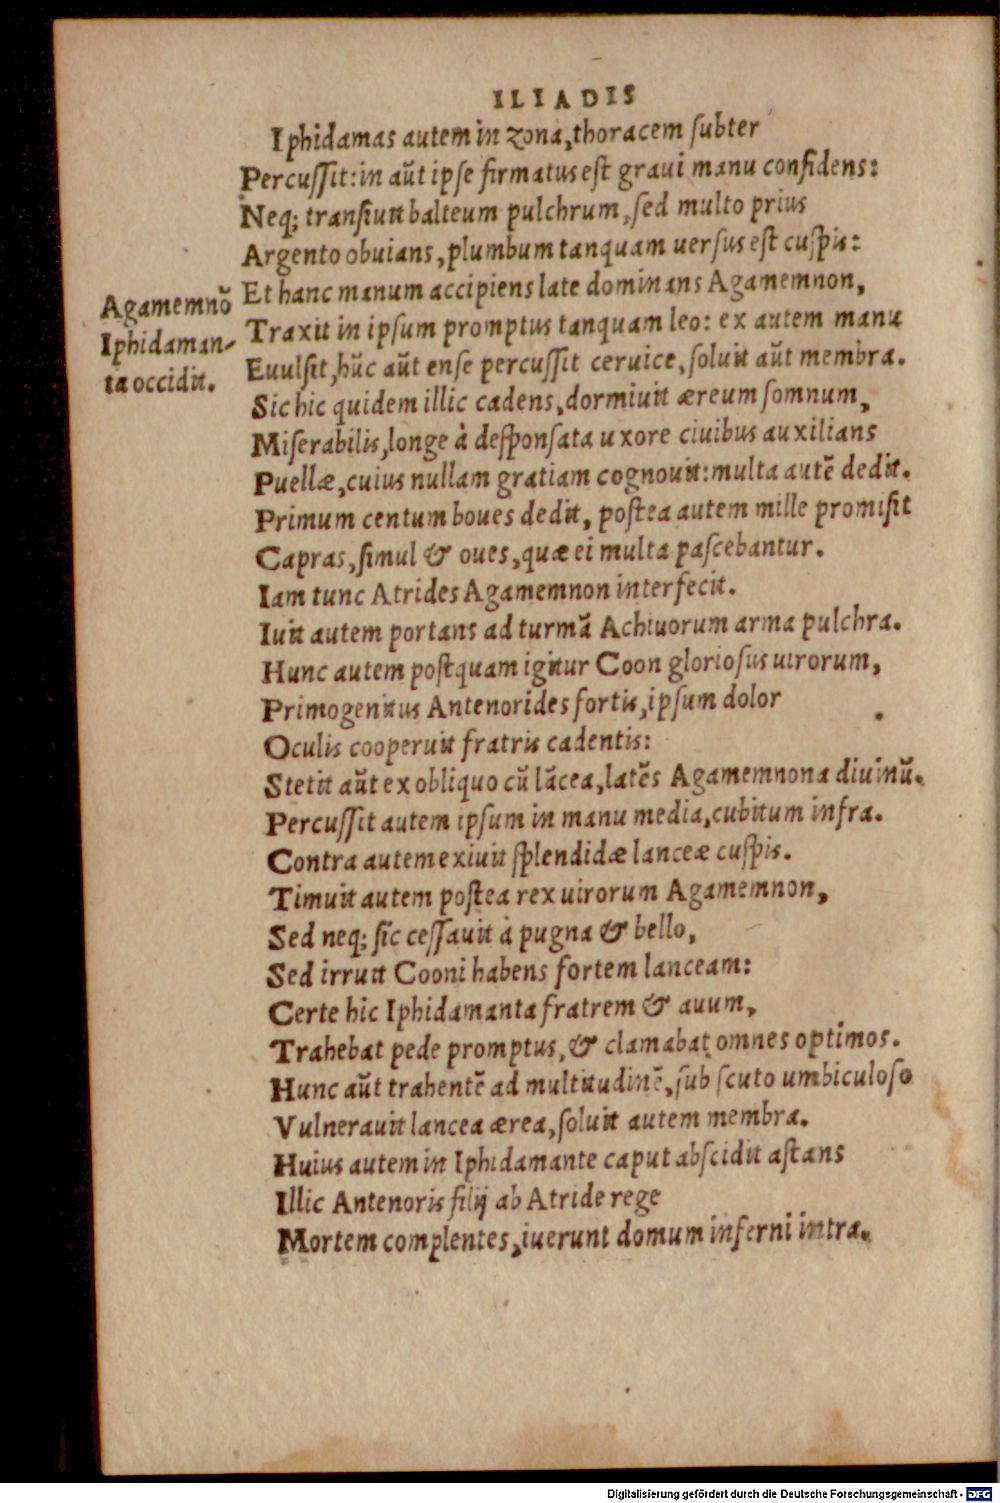 ILIADIS
Iphidamas autem in zona, thoracem subter
Percussit: in aūt ipse firmatus est graui manu confidens:
Neq; transiuit balteum pulchrum, sed multo prius
Argento obuians, plumbum tanquam uersus est cuspis:
Et hanc manum accipiens late dominans Agamemnon,
Traxit in ipsum promptus tanquam leo: ex autem manu
Euulsit, hūc aūt ense percussit ceruice, soluit aūt membra.
Agamemnō
Iphidaman-
ta occidit.
Sic hic quidem illic cadens, dormiuit æreum somnum,
Miserabilis, longe à desponsata uxore ciuibus auxilians
Puellæ, cuius nullam gratiam cognouit: multa autē dedit.
Primum centum boues dedit, postea autem mille promisit
Capras, simul & oues, quæ ei multa pascebantur.
Iam tunc Atrides Agamemnon interfecit.
Iuit autem portans ad turmā Achiuorum arma pulchra.
Hunc autem postquam igitur Coon gloriosus uirorum,
Primogenitus Antenorides fortis, ipsum dolor
Oculis cooperuit fratris cadentis:
Stetit aūt ex obliquo cū lācea, latēs Agamemnona diuinū.
Percussit autem ipsum in manu media, cubitum infra.
Contra autem exiuit splendidæ lanceæ cuspis.
Timuit autem postea rex uirorum Agamemnon,
Sed neq; sic cessauit à pugna & bello,
Sed irruit Cooni habens fortem lanceam:
Certe hic Iphidamanta fratrem & auum,
Trahebat pede promptus, & clamabat omnes optimos.
Hunc aūt trahentē ad multitudinē, sub scuto umbiculoso
Vulnerauit lancea ærea, soluit autem membra.
Huius autem in Iphidamante caput abscidit astans
Illic Antenoris filij ab Atride rege
Mortem complentes, iuerunt domum inferni intra.
Digitalisierung gefördert durch die Deutsche Forschungsgemeinschaft - DFG